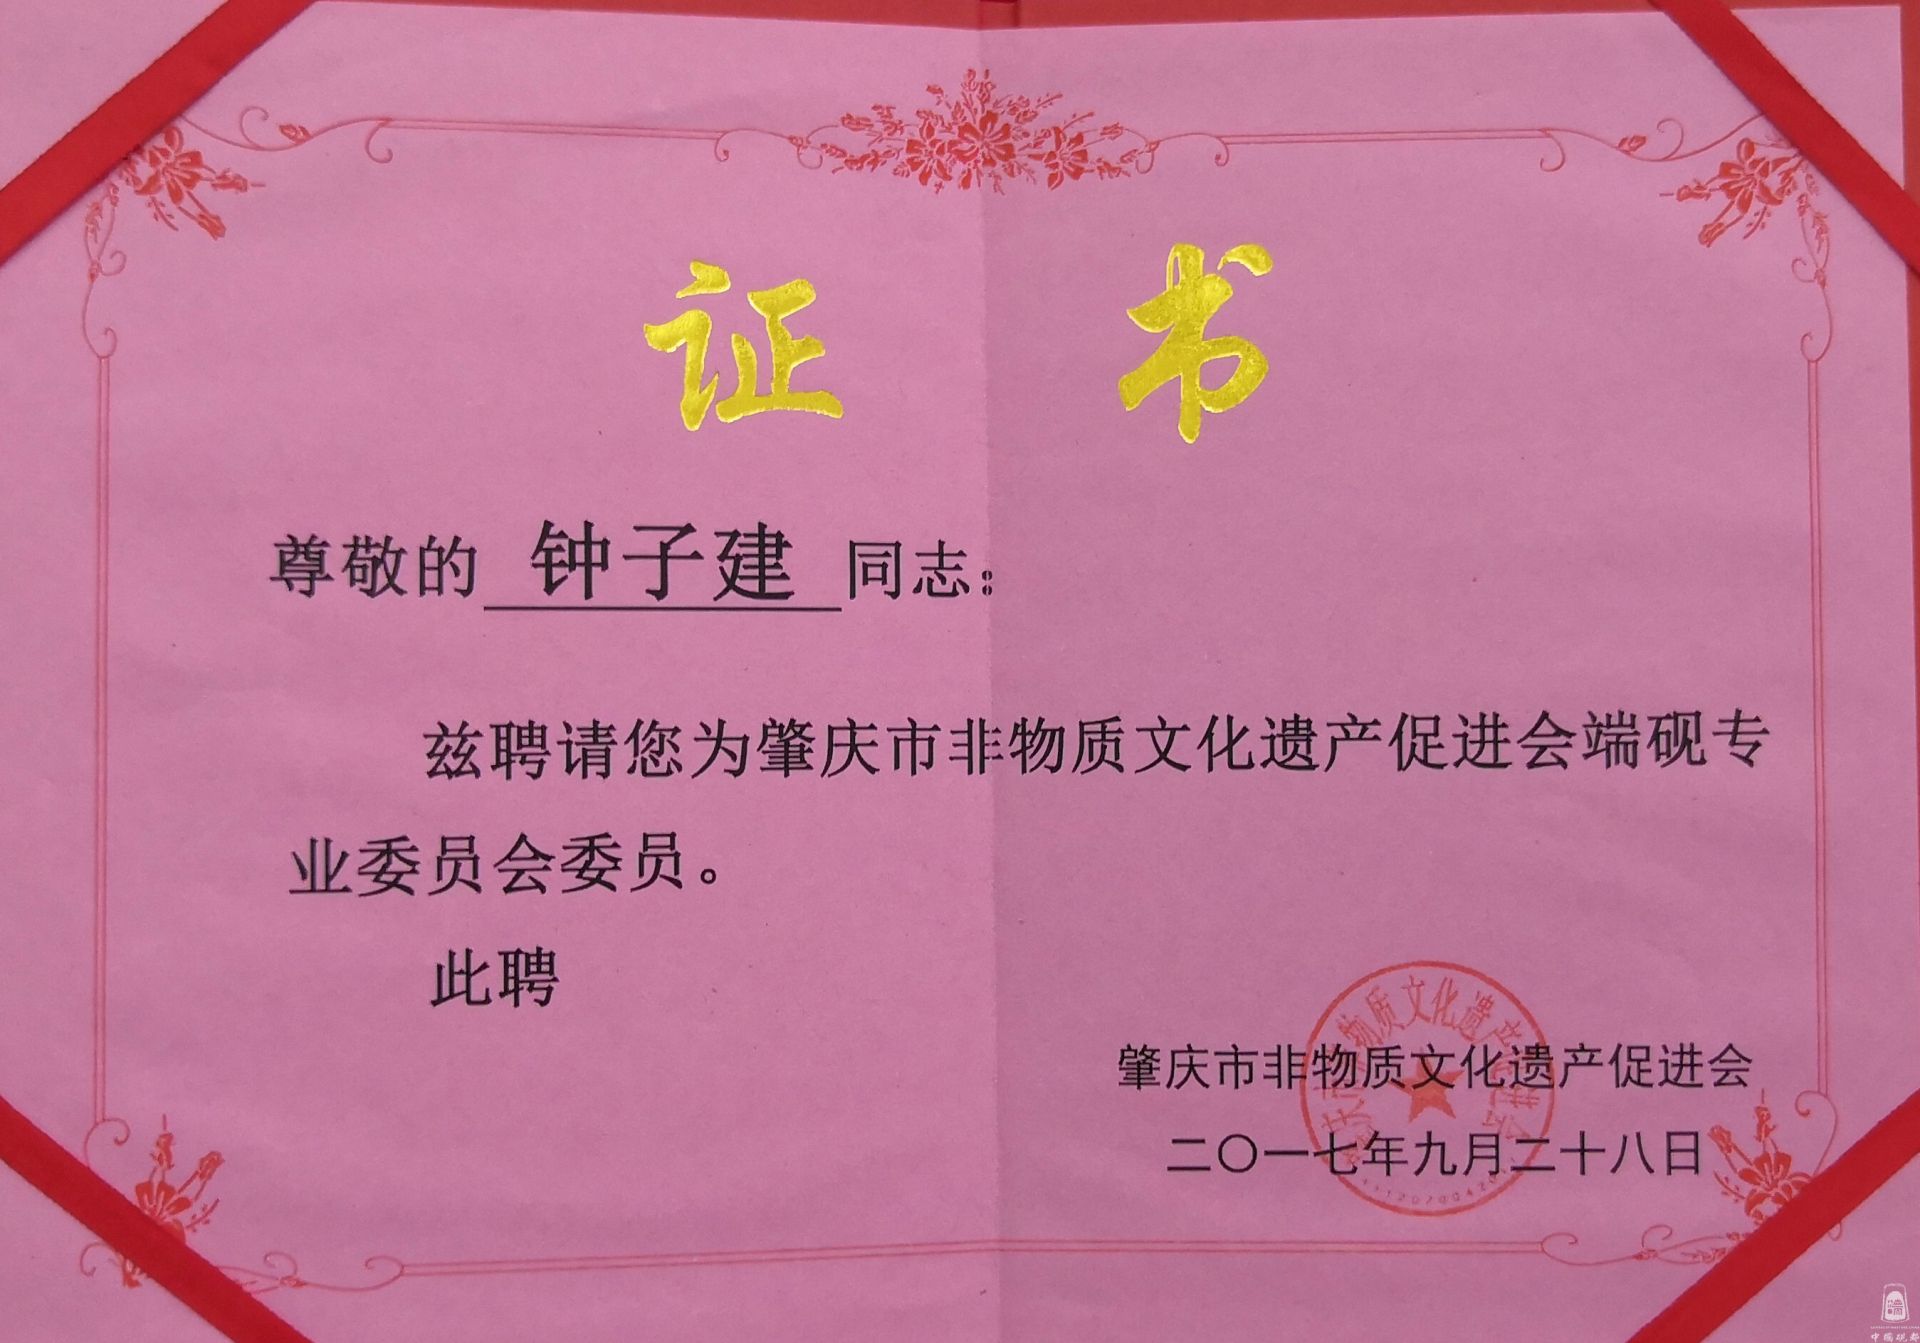 证 书
尊敬的 钟子建 同志：
兹聘请您为肇庆市非物质文化遗产促进会端砚专
业委员会委员。
此聘
肇庆市非物质文化遗产促进会
二〇一七年九月二十八日
中国砚都